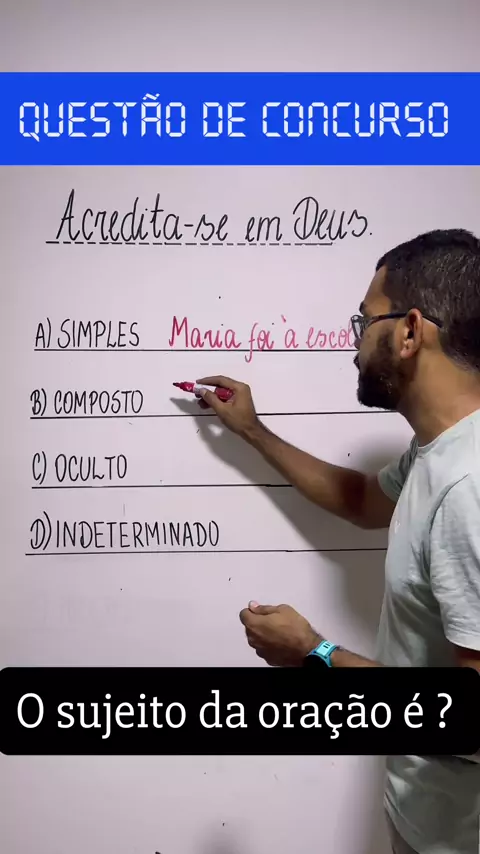 QUESTÃO DE CONCURSO
Acredita-se em Deus.
A) SIMPLES Maria foi à
B) COMPOSTO
C) OCULTO
D) INDETERMINADO
O sujeito da oração é ?